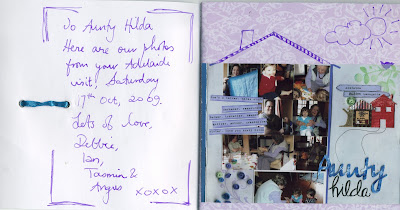 To Aunty Hilda
Here are our photos
from your Adelaide
visit, Saturday
17th Oct, 2009.
Lots of love,
Debbie,
Ian,
Tasmin &
Angus
xoxox
aunty
hilda